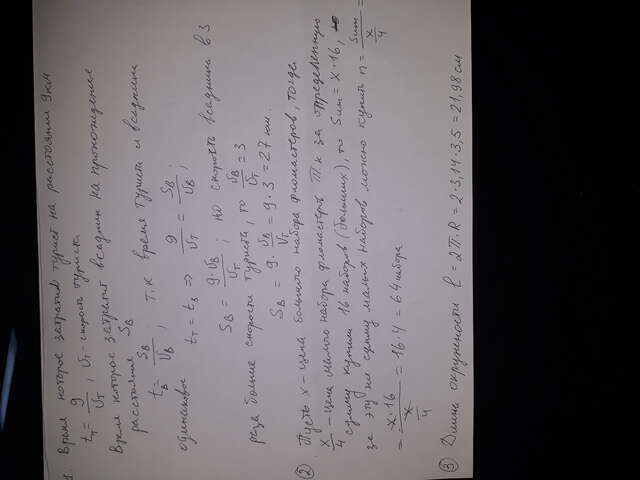 1. Время которое затратил турист на расстоянии 9 км
tт = 9/Vт, Vт - скорость туриста
Время которое затратит всадник на прохождение
расстояния Sв
tв = Sв/Vв; т.к время туриста и всадника
одинаковое tт = tв => 9/Vт = Sв/Vв;
Sв = 9·Vв/Vт; но скорость всадника в 3
раза больше скорости туриста, то Vв/Vт = 3
Sв = 9·Vв/Vт = 9·3 = 27 км.
2. Пусть x - цена большого набора фломастеров, тогда
x/4 - цена малого набора фломастеров Т.к за определенную
сумму купили 16 наборов (больших), то Sum = x·16,
за эту же сумму малых наборов можно купить n = Sum/x/4 =
= x·16/x/4 = 16·4 = 64 набора
3 Длина окружности l = 2π·R = 2·3,14·3,5 = 21,98 см